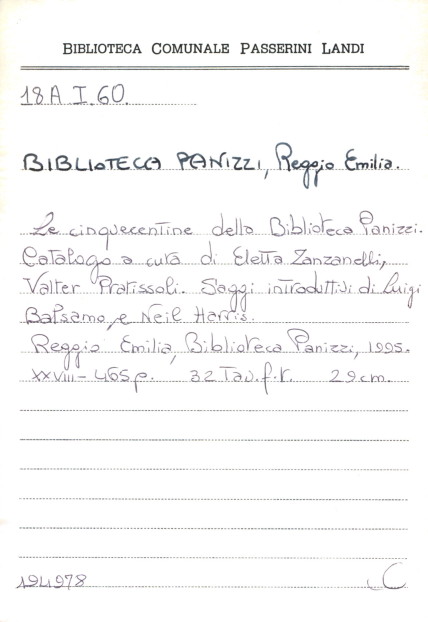 BIBLIOTECA COMUNALE PASSERINI LANDI
18 A I.60.
BIBLIOTECA PANIZZI, Reggio Emilia.
Le cinquecentine della Biblioteca Panizzi.
Catalogo a cura di Eletta Zanzanelli,
Valter Pratissoli. Saggi introduttivi di Luigi
Balsamo e Neil Harris.
Reggio Emilia, Biblioteca Panizzi, 1995.
XXVIII-465p. 32 Tav.f.t. 29cm.
194978 C